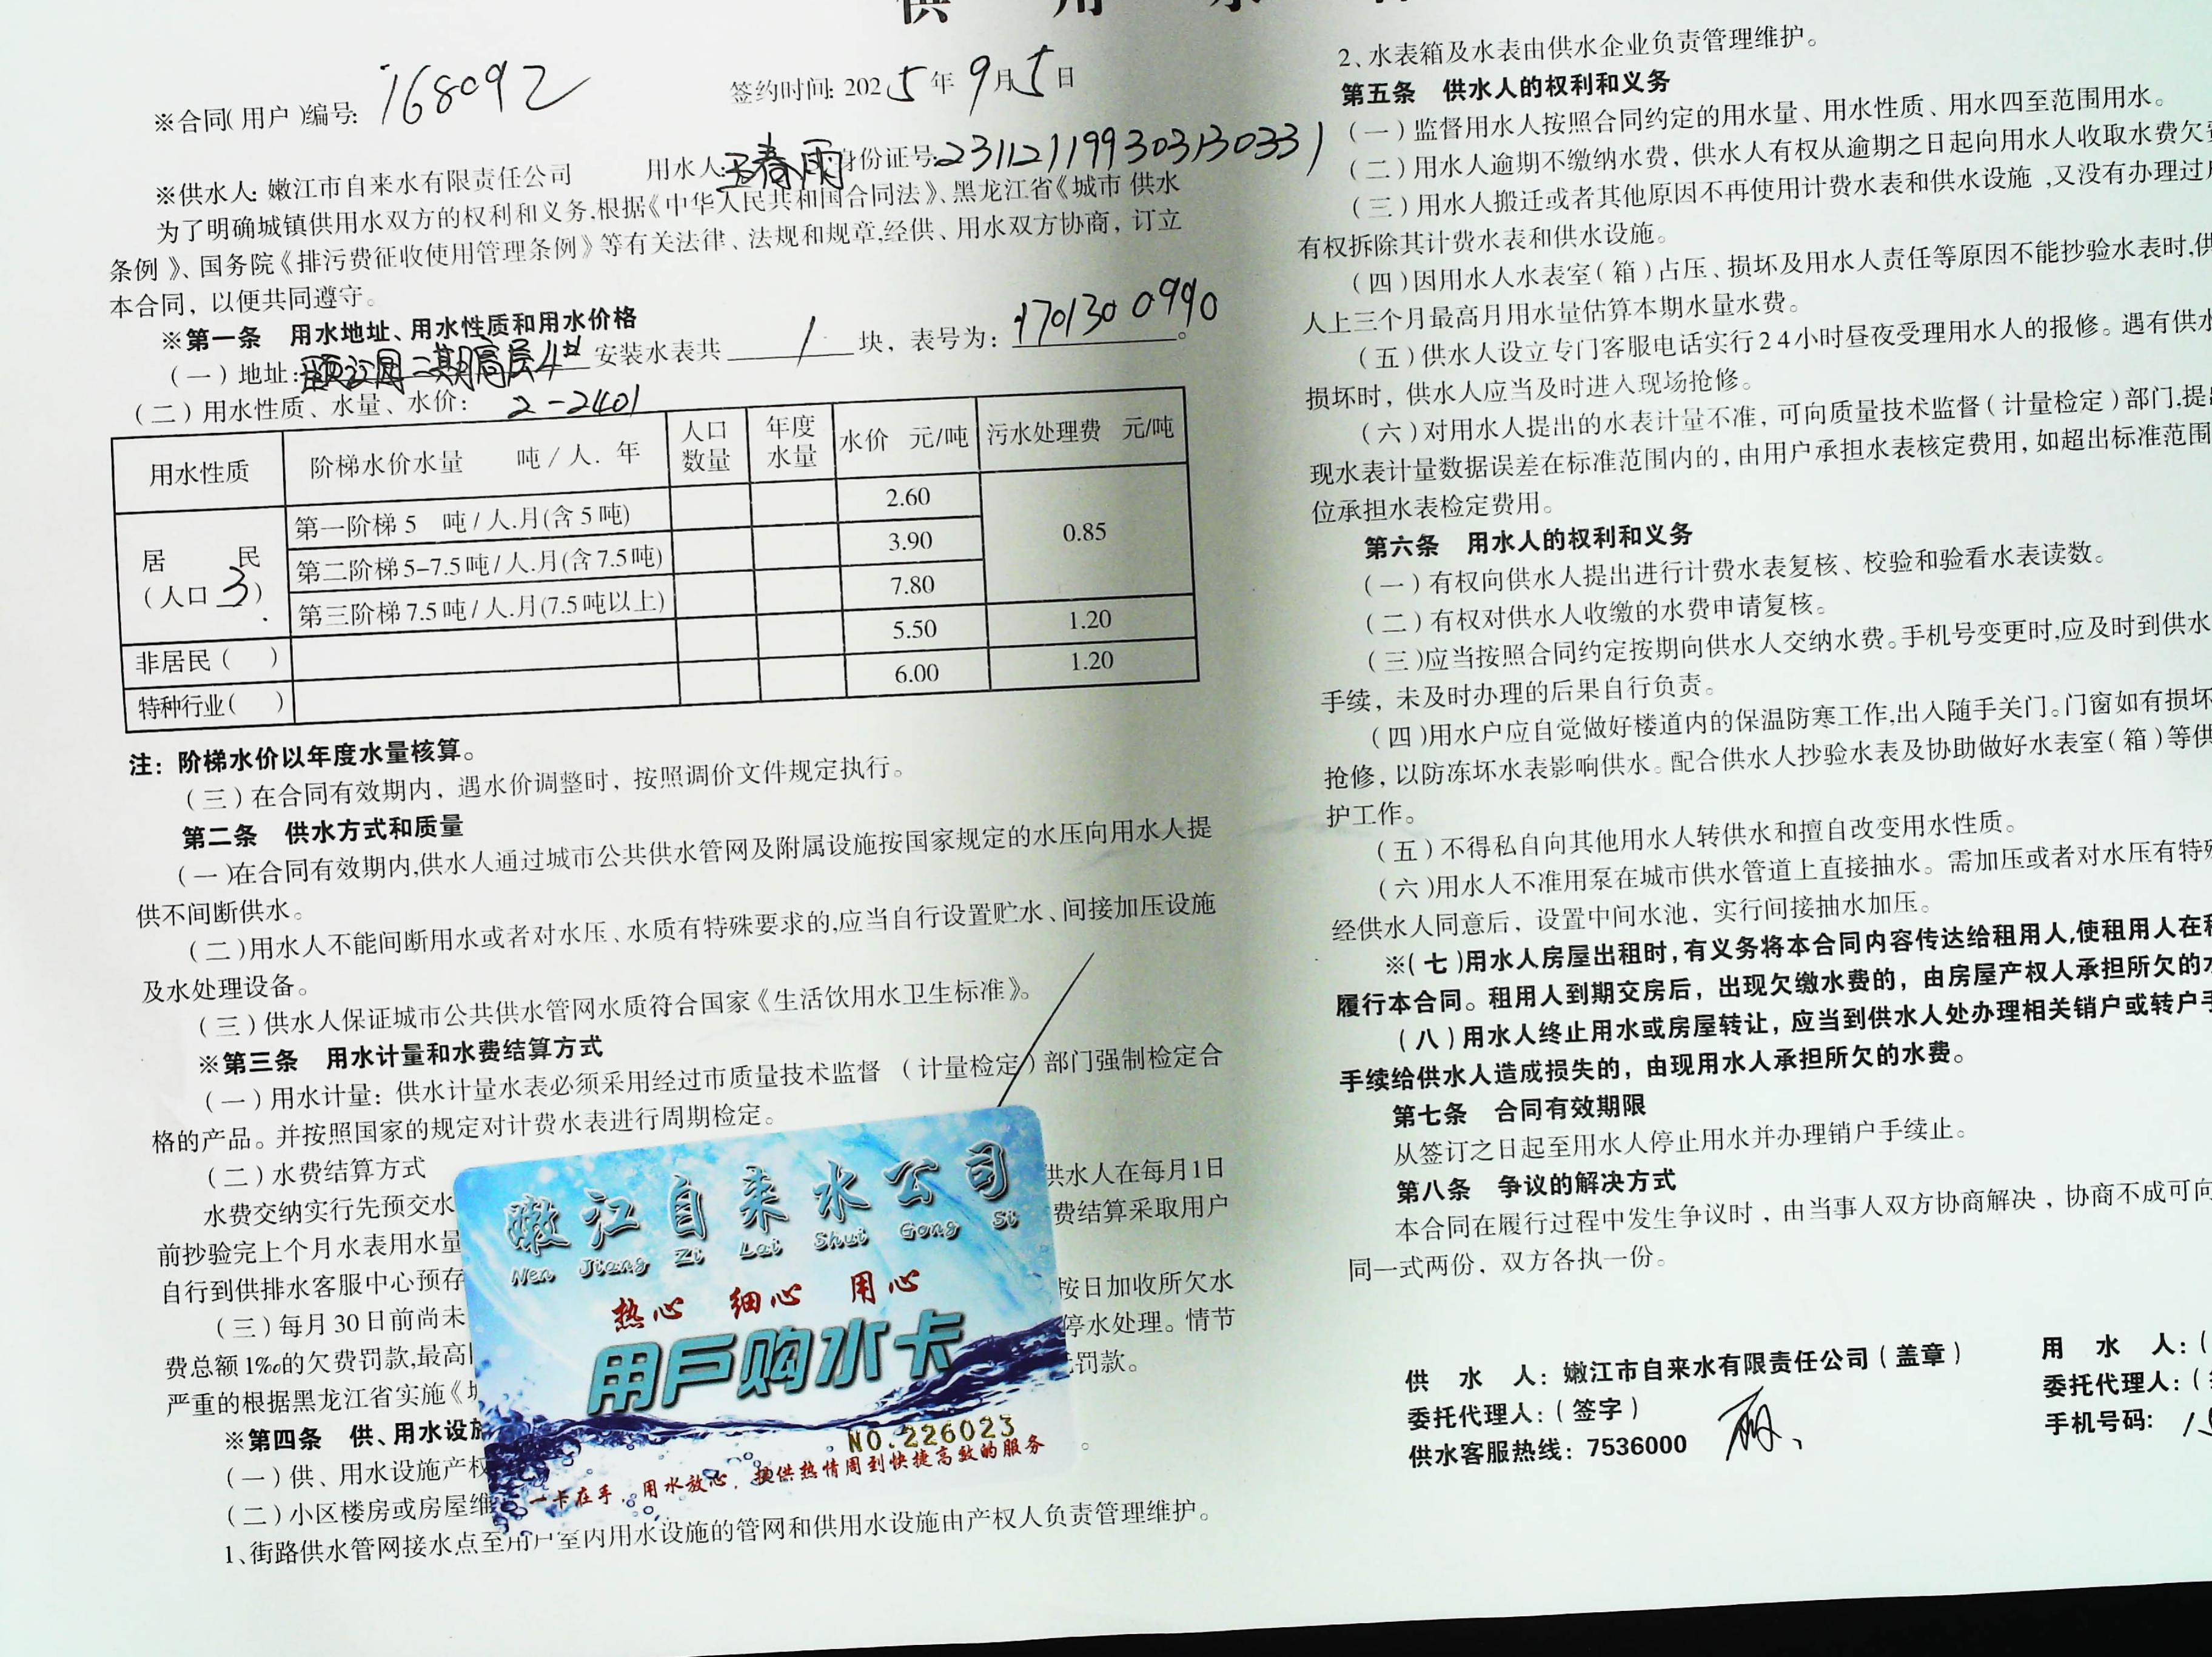 供 用 水
※合同(用户)编号: 168092 签约时间: 2025年9月5日
※供水人: 嫩江市自来水有限责任公司 用水人: 王春雨 身份证号: 231121199303130331
为了明确城镇供用水双方的权利和义务,根据《中华人民共和国合同法》、黑龙江省《城市 供水
条例》、国务院《排污费征收使用管理条例》等有关法律、法规和规章,经供、用水双方协商，订立
本合同，以便共同遵守。
※第一条 用水地址、用水性质和用水价格
(一)地址: 二期高层4# 安装水表共 1 块，表号为: 1701300990。
(二)用水性质、水量、水价: 2-2401
用水性质 阶梯水价水量 吨/人.年 人口数量 年度水量 水价 元/吨 污水处理费 元/吨
居民(人口 3) 第一阶梯5 吨/人.月(含5吨) 2.60 0.85
第二阶梯5-7.5吨/人.月(含7.5吨) 3.90
第三阶梯7.5吨/人.月(7.5吨以上) 7.80
非居民( ) 5.50 1.20
特种行业( ) 6.00 1.20
注：阶梯水价以年度水量核算。
(三)在合同有效期内，遇水价调整时，按照调价文件规定执行。
第二条 供水方式和质量
(一)在合同有效期内,供水人通过城市公共供水管网及附属设施按国家规定的水压向用水人提
供不间断供水。
(二)用水人不能间断用水或者对水压、水质有特殊要求的,应当自行设置贮水、间接加压设施
及水处理设备。
(三)供水人保证城市公共供水管网水质符合国家《生活饮用水卫生标准》。
※第三条 用水计量和水费结算方式
(一)用水计量：供水计量水表必须采用经过市质量技术监督 (计量检定)部门强制检定合
格的产品。并按照国家的规定对计费水表进行周期检定。
(二)水费结算方式
水费交纳实行先预交水 供水人在每月1日
前抄验完上个月水表用水量 费结算采取用户
自行到供排水客服中心预存
(三)每月30日前尚未 按日加收所欠水
费总额1‰的欠费罚款,最高 停水处理。情节
严重的根据黑龙江省实施《 罚款。
※第四条 供、用水设施
(一)供、用水设施产权 。
(二)小区楼房或房屋维
1、街路供水管网接水点至用户室内用水设施的管网和供用水设施由产权人负责管理维护。
嫩江自来水公司
Nen Jiang Zi Lai Shui Gong Si
热心 细心 用心
用户购水卡
NO.226023
一卡在手，用水放心，提供热情周到快捷高效的服务
2、水表箱及水表由供水企业负责管理维护。
第五条 供水人的权利和义务
(一)监督用水人按照合同约定的用水量、用水性质、用水四至范围用水。
(二)用水人逾期不缴纳水费，供水人有权从逾期之日起向用水人收取水费欠费
(三)用水人搬迁或者其他原因不再使用计费水表和供水设施,又没有办理过户
有权拆除其计费水表和供水设施。
(四)因用水人水表室(箱)占压、损坏及用水人责任等原因不能抄验水表时,供
人上三个月最高月用水量估算本期水量水费。
(五)供水人设立专门客服电话实行24小时昼夜受理用水人的报修。遇有供水
损坏时，供水人应当及时进入现场抢修。
(六)对用水人提出的水表计量不准，可向质量技术监督(计量检定)部门,提出
现水表计量数据误差在标准范围内的，由用户承担水表核定费用，如超出标准范围
位承担水表检定费用。
第六条 用水人的权利和义务
(一)有权向供水人提出进行计费水表复核、校验和验看水表读数。
(二)有权对供水人收缴的水费申请复核。
(三)应当按照合同约定按期向供水人交纳水费。手机号变更时,应及时到供水
手续，未及时办理的后果自行负责。
(四)用水户应自觉做好楼道内的保温防寒工作,出入随手关门。门窗如有损坏
抢修，以防冻坏水表影响供水。配合供水人抄验水表及协助做好水表室(箱)等供
护工作。
(五)不得私自向其他用水人转供水和擅自改变用水性质。
(六)用水人不准用泵在城市供水管道上直接抽水。需加压或者对水压有特殊
经供水人同意后，设置中间水池，实行间接抽水加压。
※(七)用水人房屋出租时,有义务将本合同内容传达给租用人,使租用人在租
履行本合同。租用人到期交房后，出现欠缴水费的，由房屋产权人承担所欠的水
(八)用水人终止用水或房屋转让，应当到供水人处办理相关销户或转户手
手续给供水人造成损失的，由现用水人承担所欠的水费。
第七条 合同有效期限
从签订之日起至用水人停止用水并办理销户手续止。
第八条 争议的解决方式
本合同在履行过程中发生争议时，由当事人双方协商解决，协商不成可向
同一式两份，双方各执一份。
供 水 人：嫩江市自来水有限责任公司(盖章) 用 水 人：(
委托代理人：(签字) 委托代理人：(
供水客服热线：7536000 手机号码：